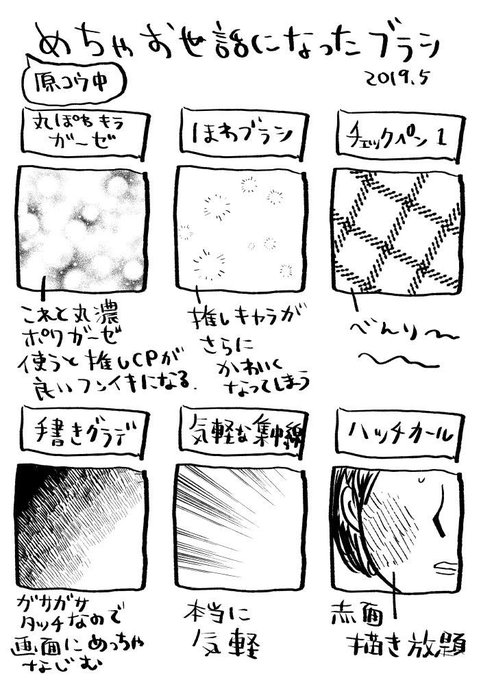 めちゃお世話になったブラシ
原コウ中
2019.5
丸ぽわキラ
ガーゼ
ほわブラシ
チェックペン1
これと丸濃
ポワガーゼ
使うと推しCPが
良いフンイキになる.
推しキャラが
さらに
かわいく
なってしまう
べんり〜
手書きグラデ
気軽な集中線
ハッチカール
ガサガサ
タッチなので
画面にめっちゃ
なじむ
本当に
気軽
赤面
描き放題